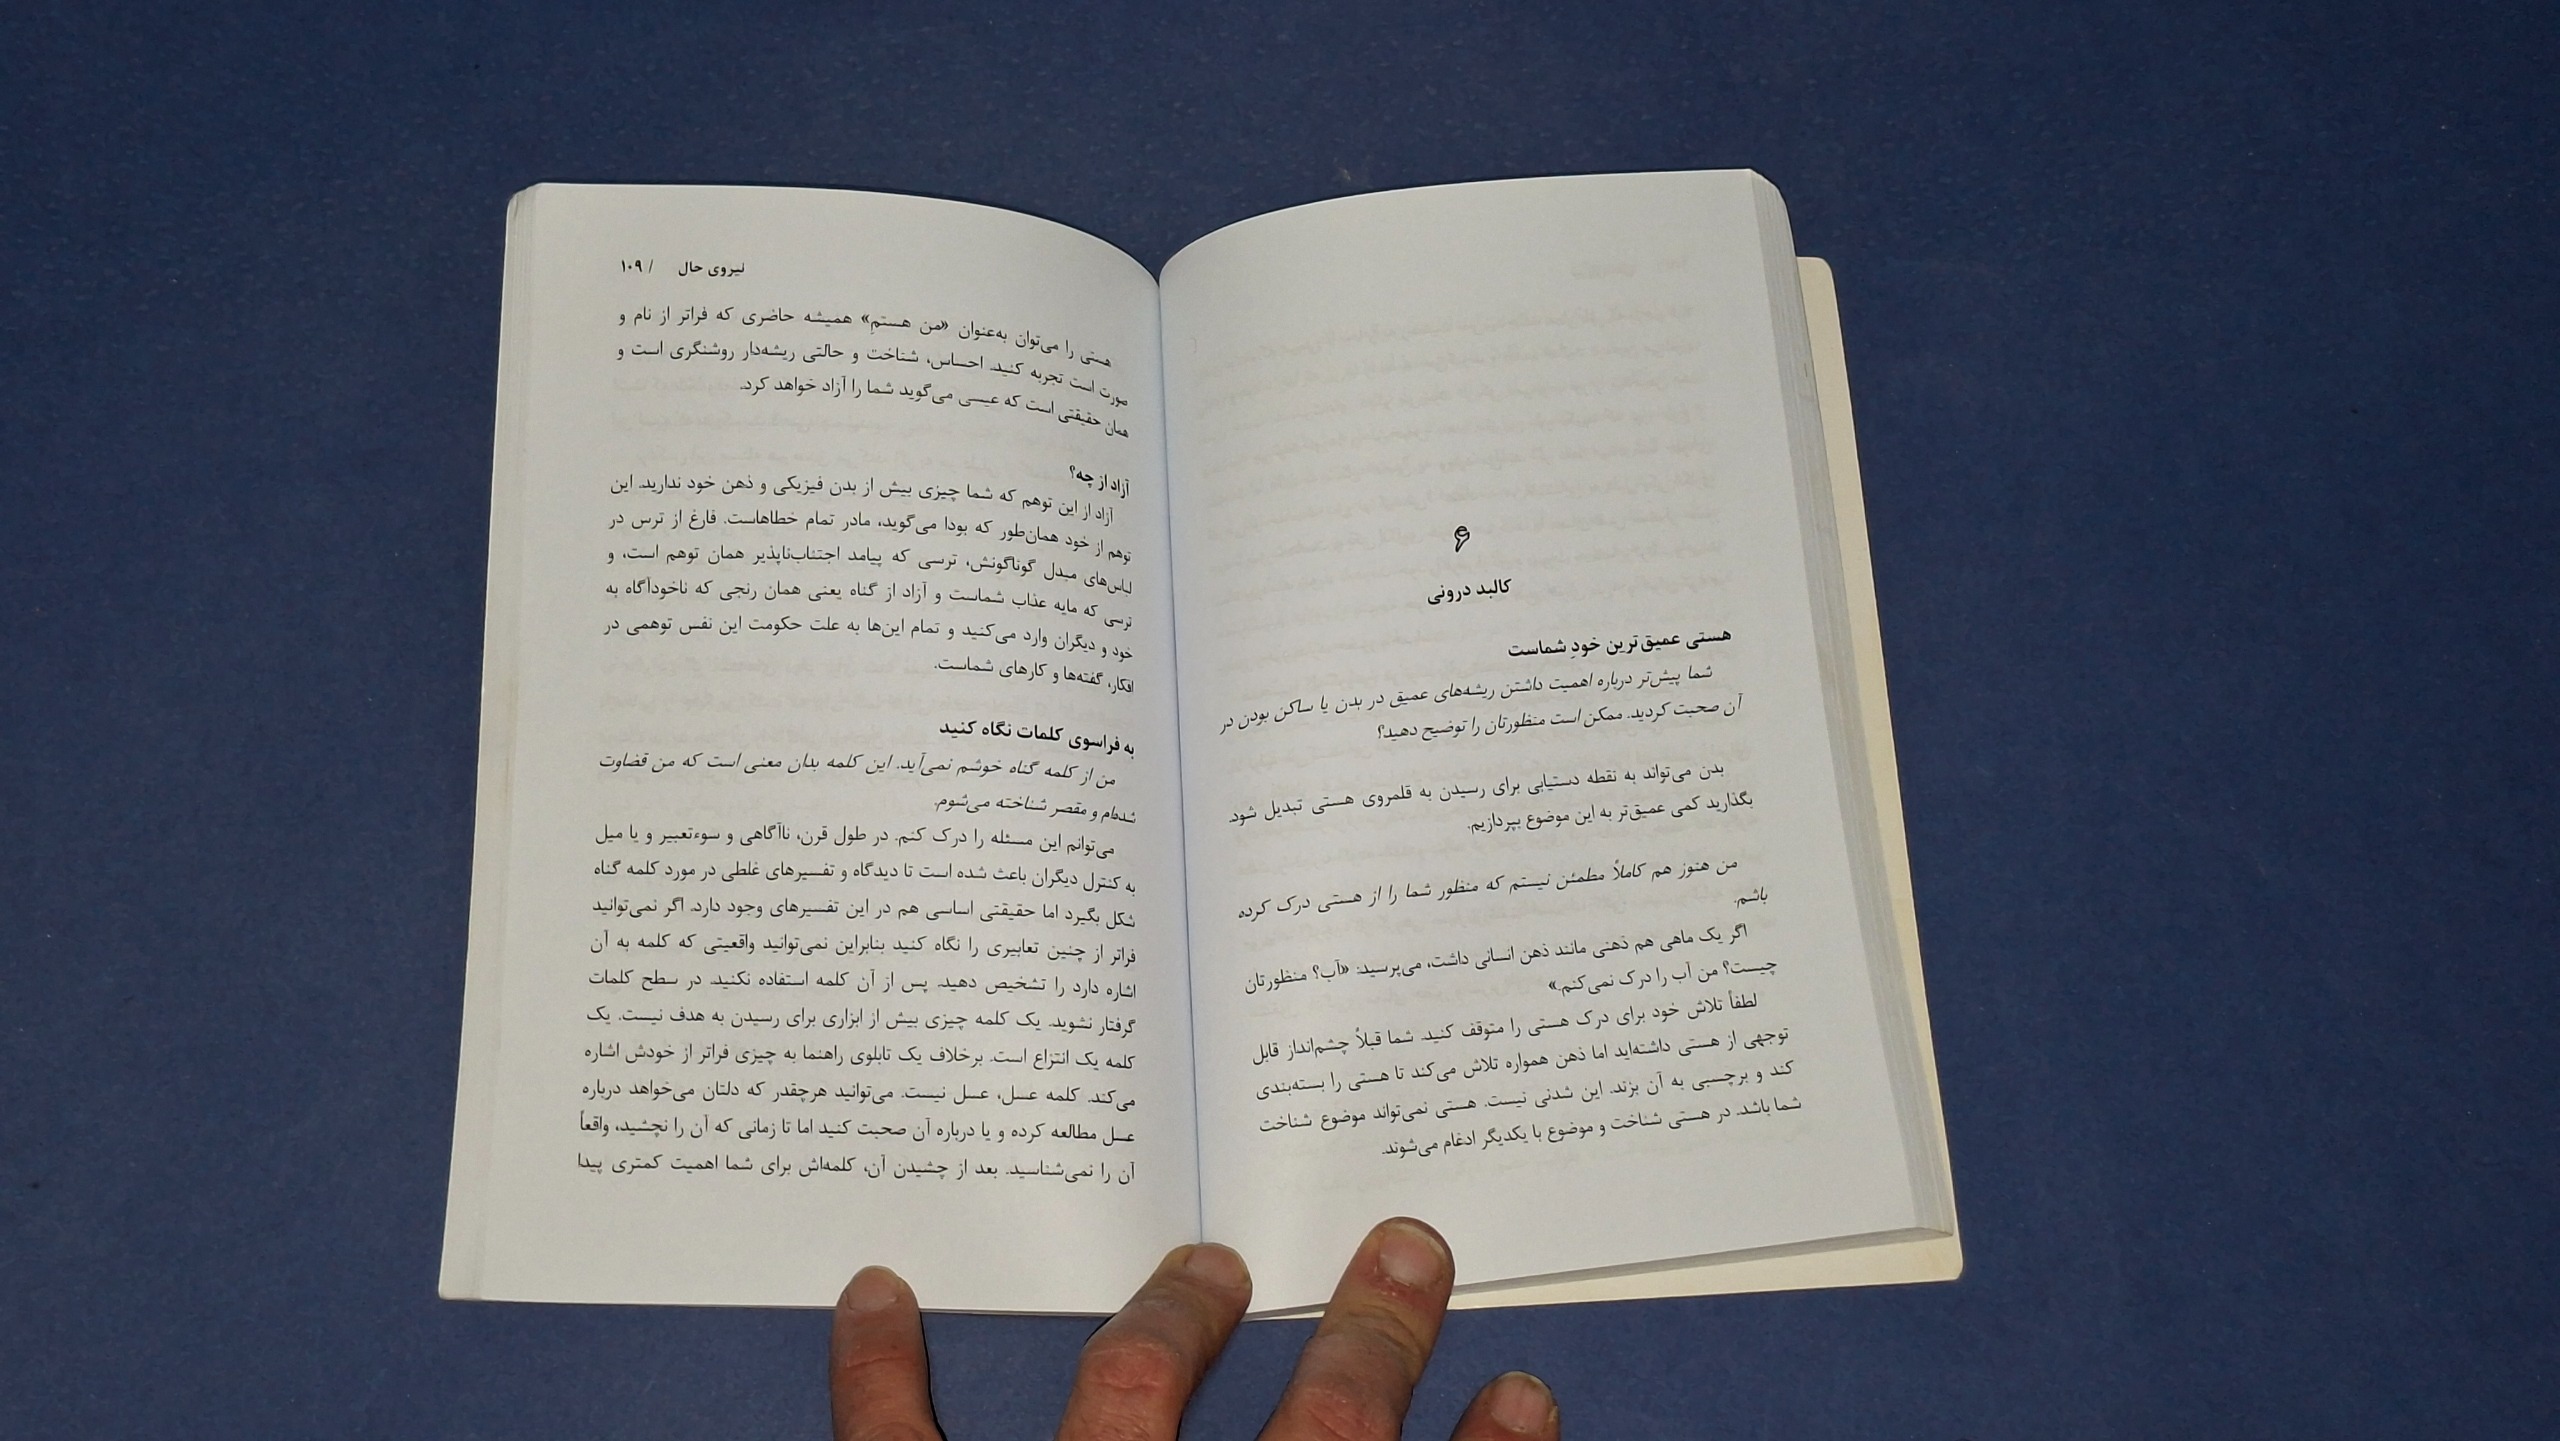 ۶
کالبد درونی
هستی عمیق‌ترین خودِ شماست
شما پیش‌تر درباره اهمیت داشتن ریشه‌های عمیق در بدن یا ساکن بودن در
آن صحبت کردید. ممکن است منظورتان را توضیح دهید؟
بدن می‌تواند به نقطه دستیابی برای رسیدن به قلمروی هستی تبدیل شود.
بگذارید کمی عمیق‌تر به این موضوع بپردازیم.
من هنوز هم کاملاً مطمئن نیستم که منظور شما را از هستی درک کرده
باشم.
اگر یک ماهی هم ذهنی مانند ذهن انسانی داشت، می‌پرسید: «آب؟ منظورتان
چیست؟ من آب را درک نمی‌کنم.»
لطفاً تلاش خود برای درک هستی را متوقف کنید. شما قبلاً چشم‌انداز قابل
توجهی از هستی داشته‌اید اما ذهن همواره تلاش می‌کند تا هستی را بسته‌بندی
کند و برچسبی به آن بزند. این شدنی نیست. هستی نمی‌تواند موضوع شناخت
شما باشد. در هستی شناخت و موضوع با یکدیگر ادغام می‌شوند.
نیروی حال / ۱۰۹
هستی را می‌توان به‌عنوان «من هستمِ» همیشه حاضری که فراتر از نام و
صورت است تجربه کنید. احساس، شناخت و حالتی ریشه‌دار روشنگری است و
همان حقیقتی است که عیسی می‌گوید شما را آزاد خواهد کرد.
آزاد از چه؟
آزاد از این توهم که شما چیزی بیش از بدن فیزیکی و ذهن خود ندارید. این
توهم از خود همان‌طور که بودا می‌گوید، مادر تمام خطاهاست. فارغ از ترس در
لباس‌های مبدل گوناگونش، ترسی که پیامد اجتناب‌ناپذیر همان توهم است، و
ترسی که مایه عذاب شماست و آزاد از گناه یعنی همان رنجی که ناخودآگاه به
خود و دیگران وارد می‌کنید و تمام این‌ها به علت حکومت این نفس توهمی در
افکار، گفته‌ها و کارهای شماست.
به فراسوی کلمات نگاه کنید
من از کلمه گناه خوشم نمی‌آید. این کلمه بدان معنی است که من قضاوت
شده‌ام و مقصر شناخته می‌شوم.
می‌توانم این مسئله را درک کنم. در طول قرن، ناآگاهی و سوءتعبیر و یا میل
به کنترل دیگران باعث شده است تا دیدگاه و تفسیرهای غلطی در مورد کلمه گناه
شکل بگیرد اما حقیقتی اساسی هم در این تفسیرهای وجود دارد. اگر نمی‌توانید
فراتر از چنین تعابیری را نگاه کنید بنابراین نمی‌توانید واقعیتی که کلمه به آن
اشاره دارد را تشخیص دهید. پس از آن کلمه استفاده نکنید. در سطح کلمات
گرفتار نشوید. یک کلمه چیزی بیش از ابزاری برای رسیدن به هدف نیست. یک
کلمه یک انتزاع است. برخلاف یک تابلوی راهنما به چیزی فراتر از خودش اشاره
می‌کند. کلمه عسل، عسل نیست. می‌توانید هرچقدر که دلتان می‌خواهد درباره
عسل مطالعه کرده و یا درباره آن صحبت کنید اما تا زمانی که آن را نچشید، واقعاً
آن را نمی‌شناسید. بعد از چشیدن آن، کلمه‌اش برای شما اهمیت کمتری پیدا